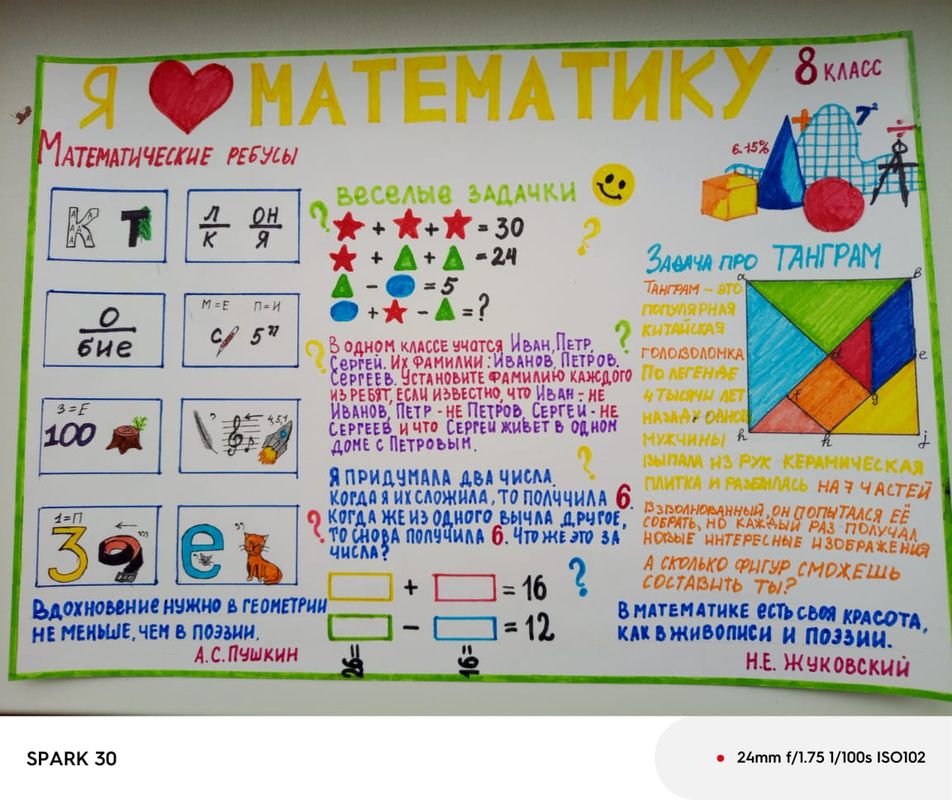 Я МАТЕМАТИКУ 8 КЛАСС
МАТЕМАТИЧЕСКИЕ РЕБУСЫ
К Т
Л ОН
К Я
О
бие
М=Е П=И
С 5"
3=Е
100
4,5,1
1=П
З 9
е
ВДОХНОВЕНИЕ НУЖНО В ГЕОМЕТРИИ
НЕ МЕНЬШЕ, ЧЕМ В ПОЭЗИИ.
А.С. ПУШКИН
ВЕСЕЛЫЕ ЗАДАЧКИ
? + + = 30 ?
+ + = 24
- = 5
+ - = ?
? В ОДНОМ КЛАССЕ УЧАТСЯ ИВАН, ПЕТР, ?
СЕРГЕЙ. ИХ ФАМИЛИИ: ИВАНОВ, ПЕТРОВ,
СЕРГЕЕВ. УСТАНОВИТЕ ФАМИЛИЮ КАЖДОГО
ИЗ РЕБЯТ, ЕСЛИ ИЗВЕСТНО, ЧТО ИВАН - НЕ
ИВАНОВ, ПЕТР - НЕ ПЕТРОВ, СЕРГЕЙ - НЕ
СЕРГЕЕВ И ЧТО СЕРГЕЙ ЖИВЕТ В ОДНОМ
ДОМЕ С ПЕТРОВЫМ.
?
Я ПРИДУМАЛА ДВА ЧИСЛА.
КОГДА Я ИХ СЛОЖИЛА, ТО ПОЛУЧИЛА 6.
? КОГДА ЖЕ ИЗ ОДНОГО ВЫЧЛА ДРУГОЕ,
ТО СНОВА ПОЛУЧИЛА 6. ЧТО ЖЕ ЭТО ЗА
ЧИСЛА?
+ = 16 ?
- = 12
26= 16=
6.15% + 7²
ЗАДАЧА ПРО ТАНГРАМ
a B
d e
f g
h k j
ТАНГРАМ - ЭТО
ПОПУЛЯРНАЯ
КИТАЙСКАЯ
ГОЛОВОЛОМКА
ПО ЛЕГЕНДЕ
4 ТЫСЯЧИ ЛЕТ
НАЗАД У ОДНОГО
МУЖЧИНЫ
ВЫПАЛА ИЗ РУК КЕРАМИЧЕСКАЯ
ПЛИТКА И РАЗБИЛАСЬ НА 7 ЧАСТЕЙ
ВЗВОЛНОВАННЫЙ, ОН ПОПЫТАЛСЯ ЕЁ
СОБРАТЬ, НО КАЖДЫЙ РАЗ ПОЛУЧАЛ
НОВЫЕ ИНТЕРЕСНЫЕ ИЗОБРАЖЕНИЯ
А СКОЛЬКО ФИГУР СМОЖЕШЬ
СОСТАВИТЬ ТЫ?
В МАТЕМАТИКЕ ЕСТЬ СВОЯ КРАСОТА,
КАК В ЖИВОПИСИ И ПОЭЗИИ.
Н.Е. ЖУКОВСКИЙ
SPARK 30
24mm f/1.75 1/100s ISO102